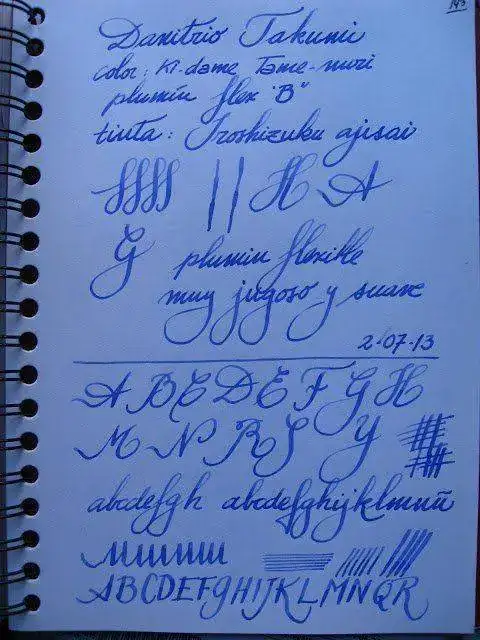 143
Danitrio Takumi
color: Ki-dame Tame-nuri
plumín flex "B"
tinta: Iroshizuku ajisai
H A
G plumin flexible
muy jugoso y suave
2-07-13
A B C D E F G H
M N R S Y
abcdefgh abcdefghijklmnñ
ABCDEFGHIJKLMNQR